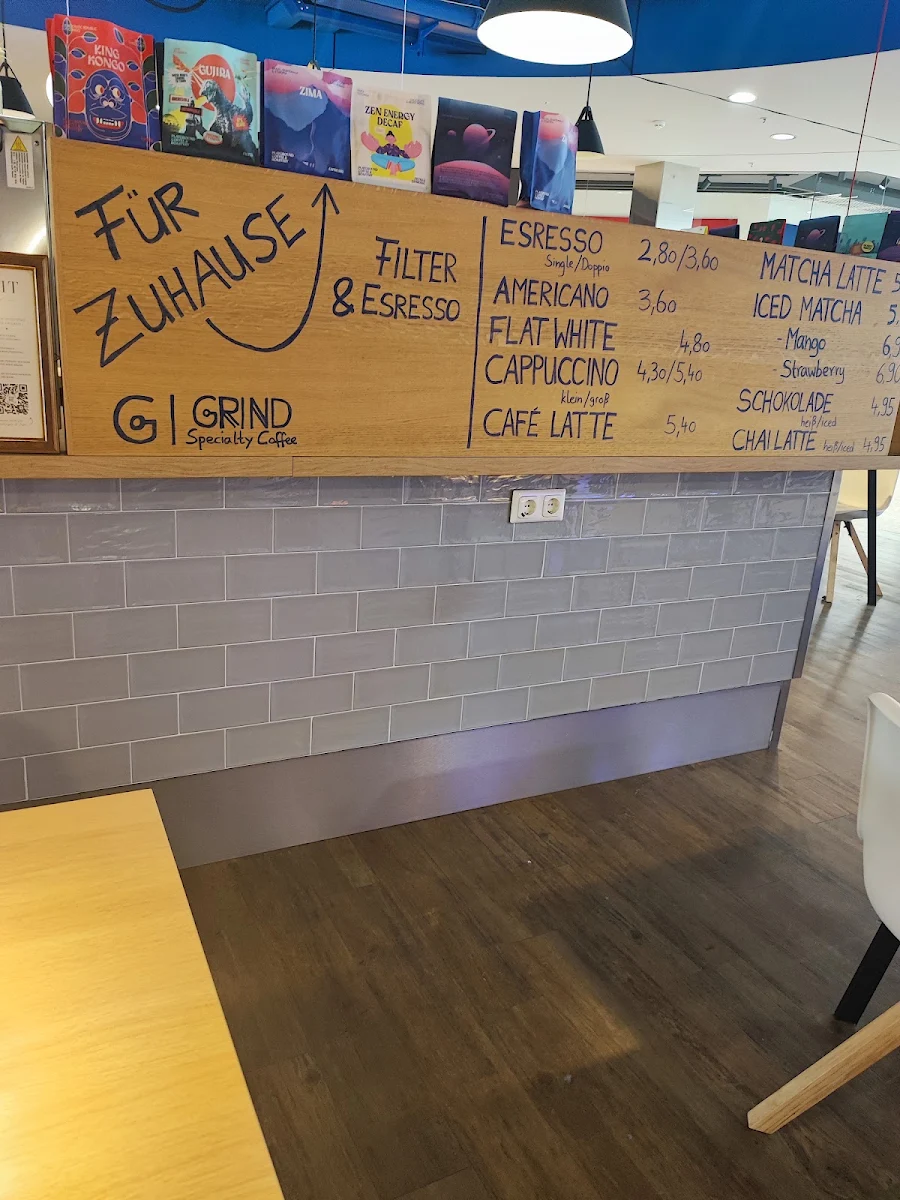 KING
KONGO
GUJIRA
ZIMA
ZEN ENERGY
DECAF
FÜR
ZUHAUSE
FILTER
& ESRESSO
G | GRIND
Specialty Coffee
ESRESSO 2,80/3,60
Single/Doppio
AMERICANO 3,60
FLAT WHITE 4,80
CAPPUCCINO 4,30/5,40
klein/groß
CAFÉ LATTE 5,40
MATCHA LATTE 5
ICED MATCHA 5,
- Mango 6,9
- Strawberry 6,90
SCHOKOLADE 4,95
heiß/iced
CHAI LATTE heiß/iced 4,95